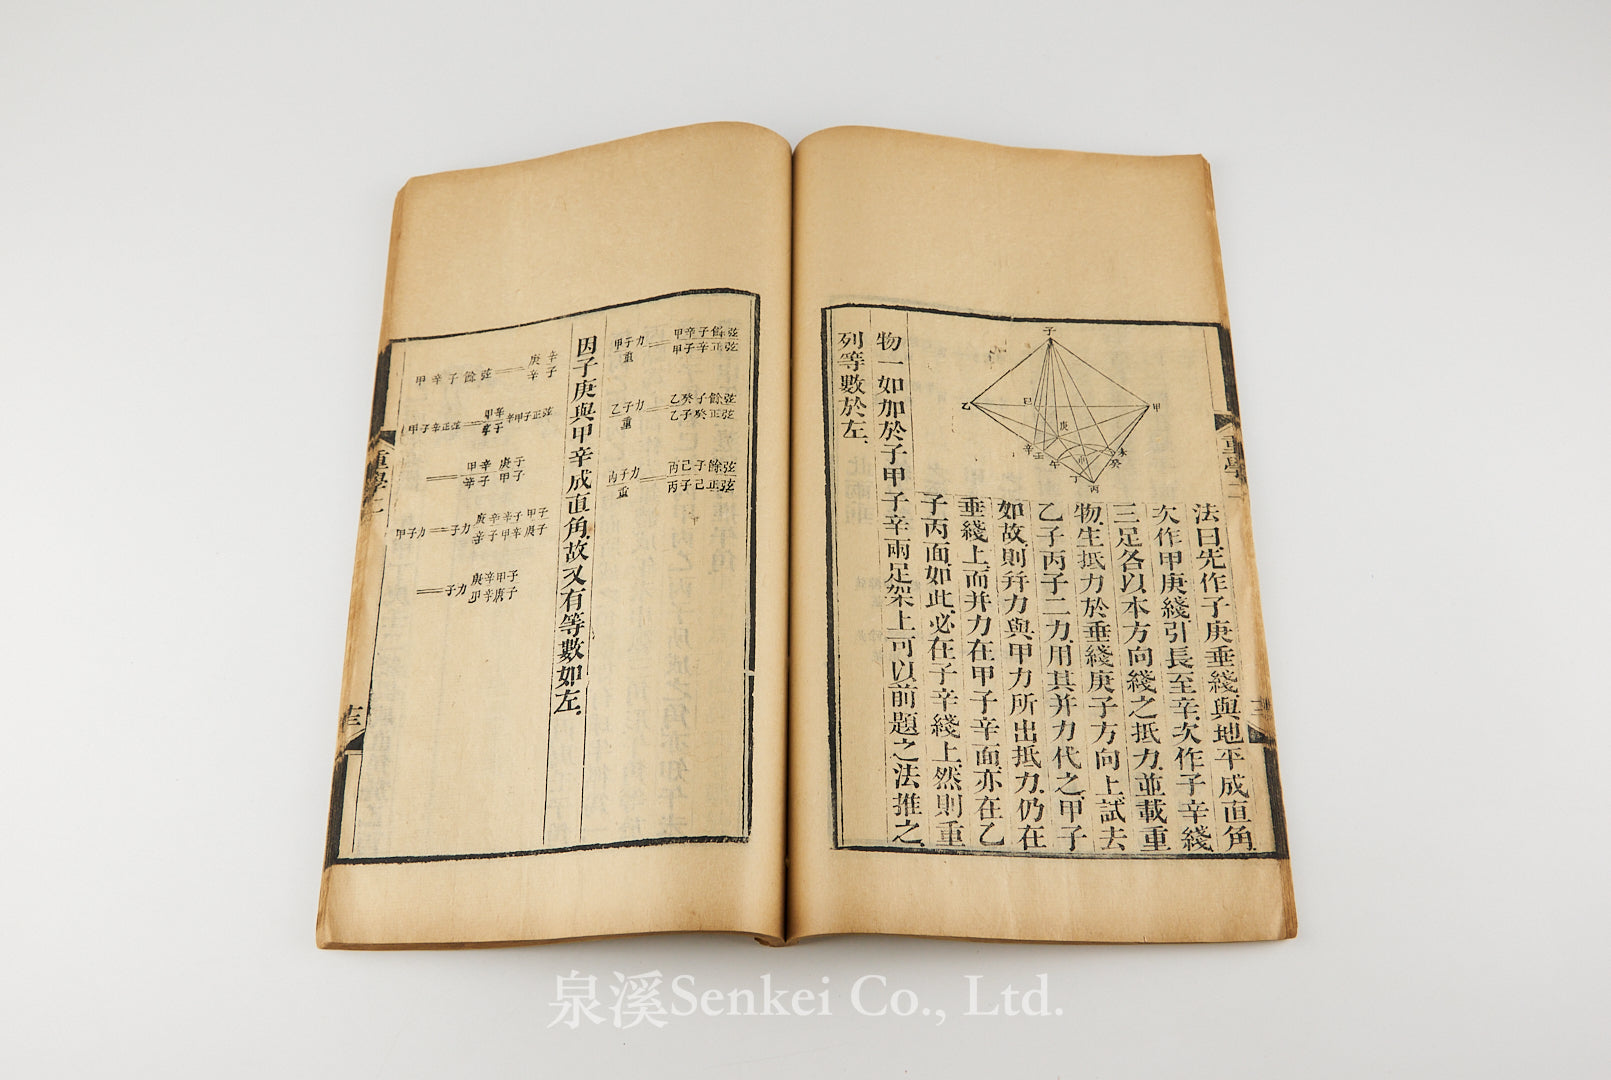 子
乙
甲
己
庚
辛
壬
午
癸
丁
丙
法曰先作子庚垂綫與地平成直角
次作甲庚綫引長至辛次作子辛綫
三足各以本方向綫之抵力並載重
物生抵力於垂綫庚子方向上試去
乙子丙子二力用其并力代之甲子
如故則并力與甲力所出抵力仍在
垂綫上而并力在甲子辛面亦在乙
子丙面如此必在子辛綫上然則重
物一如加於子甲子辛兩足架上可以前題之法推之
列等數於左
重學二
甲子力
重
甲辛子餘弦
甲子辛正弦
乙子力
重
乙癸子餘弦
乙子癸正弦
丙子力
重
丙己子餘弦
丙子己正弦
因子庚與甲辛成直角故又有等數如左
甲辛子餘弦
庚辛
辛子
甲子辛正弦
甲辛
辛子
辛甲子正弦
甲辛 庚子
辛子 甲子
甲子力
子力
庚辛辛子甲子
辛子甲辛庚子
子力
庚辛甲子
甲辛庚子
重學二
泉溪Senkei Co., Ltd.